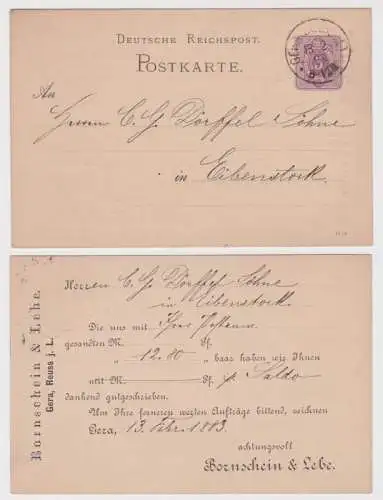 Deutsche Reichspost.
Postkarte.
An
Herren C. G. Dörffel Söhne
in Eibenstock.
Bornschein & Lebe.
Gera, Reuss j. L.
Herren C. G. Dörffel Söhne
in Eibenstock.
Die uns mit Ihrer
gesandten M. Pf.
" 12.80 " baar haben wir Ihnen
mit M. Pf. p. Saldo
dankend gutgeschrieben.
Um Ihre ferneren werthen Aufträge bittend, zeichnen
Gera, 13. Febr. 1883.
achtungsvoll
Bornschein & Lebe.